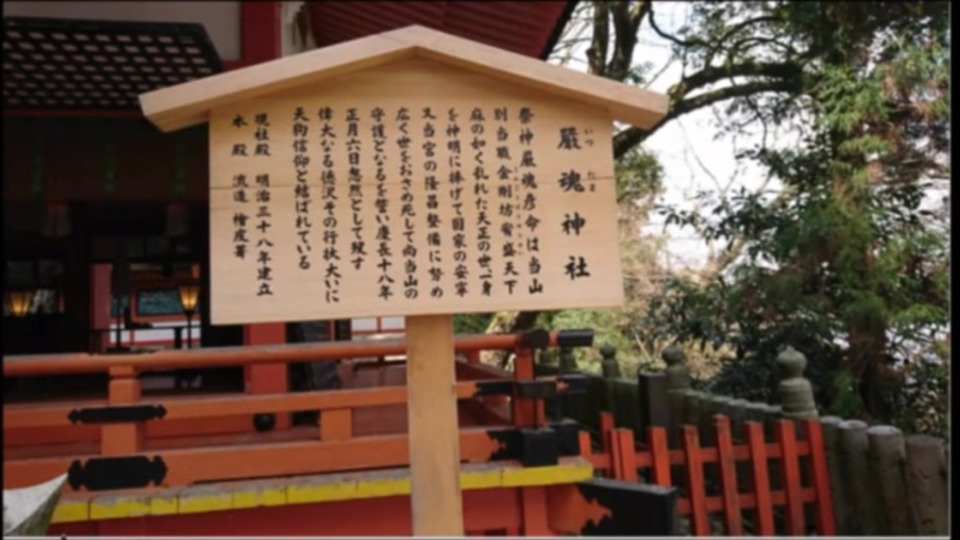 嚴魂神社
いつたま
祭神厳魂彦命は当山
別当職金剛坊宥盛天下
麻の如く乱れた天正の世一身
を神明に捧げて国家の安寧
又当宮の隆昌整備に努め
広く世をおさめ死して尚当山の
守護となるを誓い慶長十八年
正月六日忽然として歿す
偉大なる徳沢その行状大いに
天狗信仰と結ばれている
現社殿 明治三十八年建立
本殿 流造 檜皮葺